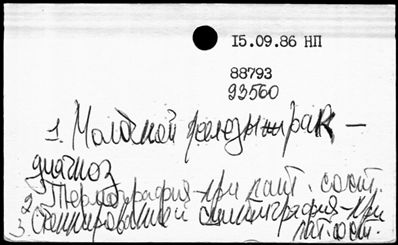 15.09.86 НП
88793
93560
1. Молочной железы рак —
диагноз
2. Термография - при пат. сост.
3. Сканирование и сцинтиграфия - при
пат. сост.